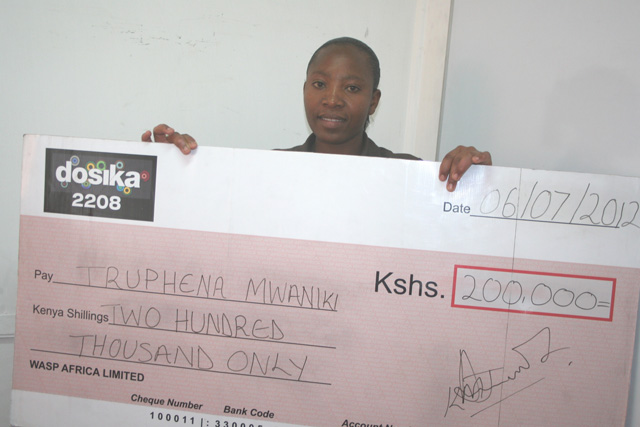 dosika
2208
Date 06/07/2012
Pay TRUPHENA MWANIKI
Kshs. 200,000=
Kenya Shillings TWO HUNDRED
THOUSAND ONLY
WASP AFRICA LIMITED
Cheque Number Bank Code
100011|: